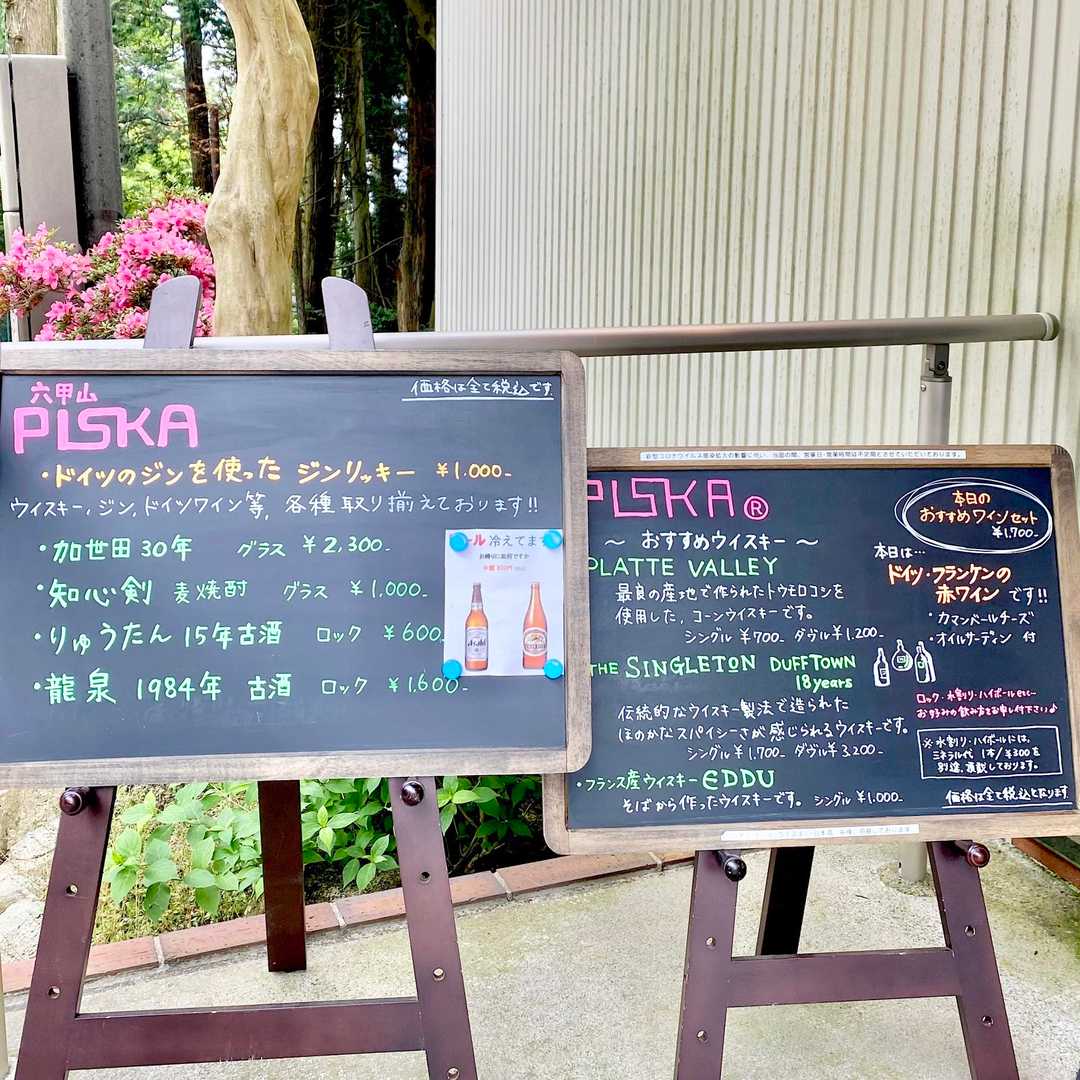 六甲山
PISKA
価格は全て税込です.
・ドイツのジンを使った ジンリッキー ¥1.000-
ウイスキー, ジン, ドイツワイン等, 各種取り揃えております!!
・加世田30年 グラス ¥2,300-
・知心剣 麦焼酎 グラス ¥1,000-
・りゅうたん 15年古酒 ロック ¥600
・龍泉 1984年 古酒 ロック ¥1,600-
ール 冷えてま
お帰りに如何ですか
Asahi
新型コロナウイルス感染拡大の影響に伴い、当面の間、営業日・営業時間は不定期とさせていただいております。
PISKA ®
〜 おすすめウイスキー 〜
PLATTE VALLEY
最良の産地で作られたトウモロコシを
使用した, コーンウイスキーです。
シングル ¥700- ダヴル ¥1.200-
THE SINGLETON DUFFTOWN
18years
伝統的なウイスキー製法で造られた
ほのかなスパイシーさが感じられるウイスキーです。
シングル ¥1,700- ダヴル ¥3.200-
・フランス産ウイスキー EDDU
そばから作ったウイスキーです。 シングル ¥1.000-
本日の
おすすめワインセット
¥1,700-
本日は…
ドイツ・フランケンの
赤ワイン です!!
・カマンベールチーズ
・オイルサーディン 付
ロック・水割り・ハイボールetc…
お好みの飲み方をお申し付け下さい♪
※水割り・ハイボールには,
ミネラル代 1本/¥300を
別途, 頂戴しております。
価格は全て税込となります